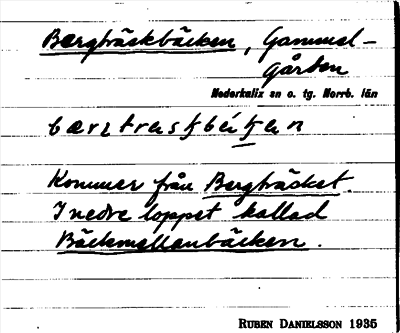 Bergträskbäcken, Gammel-
gården
Nederkalix sn o. tg. Norrb. län
Kommer från Bergträsket.
I nedre loppet kallad
Bäckmellanbäcken.
RUBEN DANIELSSON 1935